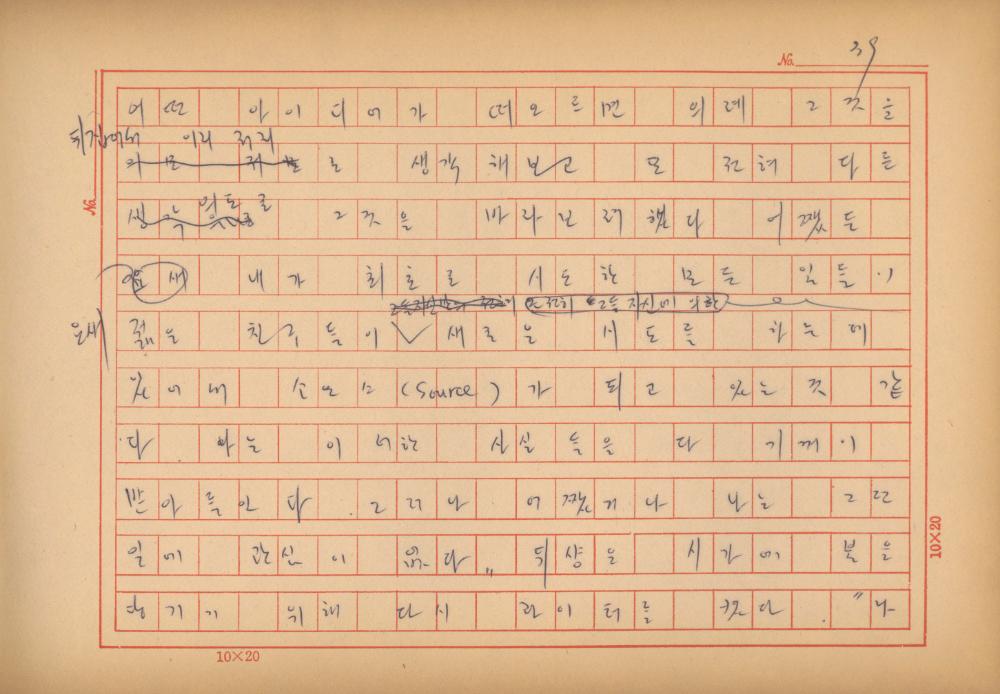 No. 39
어떤 아이디어가 떠오르면 의례 그것을
뒤집어서 이리 저리
로 생각해보고 또 전혀 다른
각도로
생각 그것을 바라보려 했다 어쨌든
요새 내가 최초로 시도한 모든 일들이
또 전혀 그들 자신에 의한
요새 젊은 친구들이 새로운 시도를 하는데
있어서 소오스 (Source) 가 되고 있는 것 같
다 나는 이러한 사실들을 다 기꺼이
받아들인다 그러나 어쨌거나 나는 그런
일에 관심이 없다" 뒤샹은 시가에 불을
당기기 위해 다시 라이터를 켰다. "나
No.
10×20
10×20